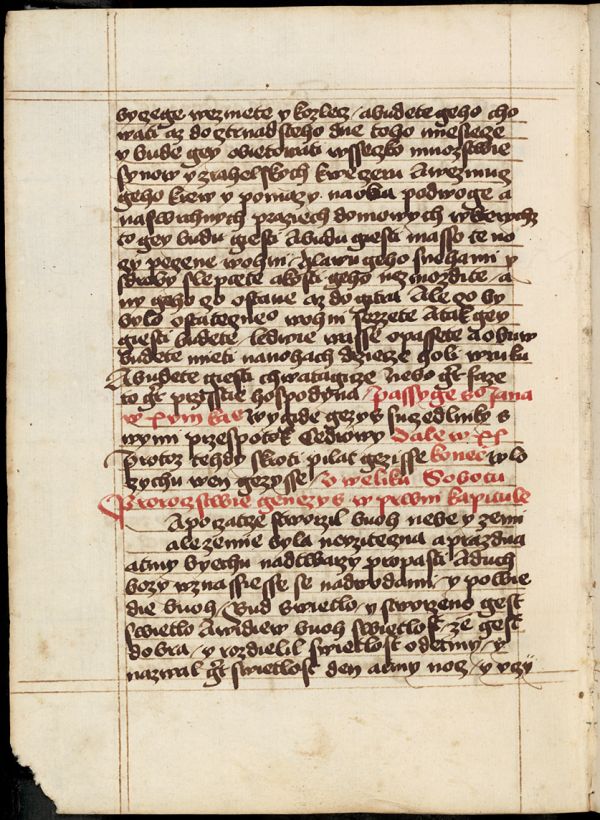 byzege wezmete y kozlecz / abudete geho cho
wati az do cztrnadsteho dne toho miesiecze
y bude gey obietowati wssecko mnozstwie
synow yzrahelskych kweczeru A wezmucz
geho krew y pomazy naoba podwoge a
na swrchnych praziech domowych wkterychz
to gey budu giesti A budu giesti masso te no
czy peczene wohni / hlawu geho snohami y
sdroby slepczete akosti geho nezmozdite / a
ny geho czo ostane az do gitra Ale czo by
bylo ostateczneo wohni sezzete A tak gey
giesti budete / ledwie wasse opassete A obuw
budete mieti nanohach drziecze holi wruku
A budete giesti chwatagicze Nebo gt faze
to gt przisstie hospodyna / passyge so Jana
w xviii kap wygide gezys suczedlniky s
wymi przespotok Cedrowy Dale w xx
Protoz tehdy skoti pilat gezisse konecz wlo
zychu wen gezysse / v weliku Sobotu
Proroczstwie genezys w prwni kapitule
Apoczatcze stworzil buoh nebe y zemi
ale zemie byla neuziteczna a prazdna
atmy byechu nadtwarzy propasti A duch
bozy wznassiesse se nadwodami / y powie
die buoh / Bud swietlo / y stworzeno gest
swietlo A widiew buoh swietlost ze gest
dobra / y rozdielil swietlost odetmy / y
nazwal gt swietlost den atmy nocz / y vczy